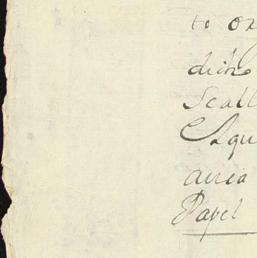 to ox
dicho
Scall
Esqu
auia
Papel